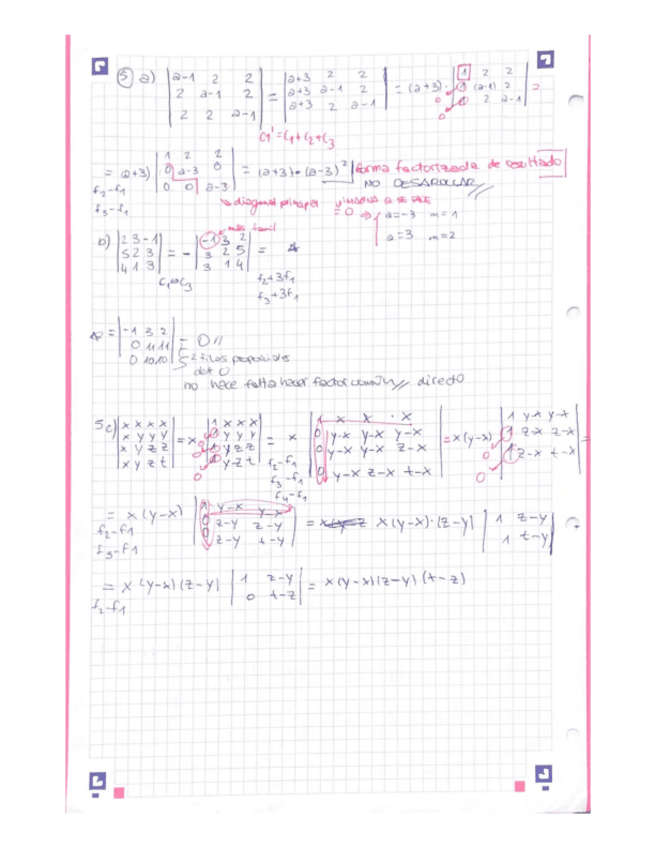 5 a) |a-1 2 2; 2 a-1 2; 2 2 a-1| = |a+3 2 2; a+3 a-1 2; a+3 2 a-1| = (a+3)· |1 2 2; 1 (a-1) 2; 1 2 a-1| =
0
0
C1' = C1+C2+C3
= (a+3) |1 2 2; 0 a-3 0; 0 0 a-3| = (a+3)·(a-3)² forma factorizada de resultado
f2-f1 NO DESAROLLAR
f3-f1 ↳ diagonal principal
= 0 ⇒ { a=-3 m=1
a=3 m=2
más facil
b) |2 3 -1; 5 2 3; 4 1 3| = - |-1 3 2; 3 2 5; 3 1 4| =
C1↔C3 f2+3f1
f3+3f1
= |-1 3 2; 0 11 11; 0 10 10| = 0//
2 filas proporciales
det 0
no hace falta hacer factor común// directo
5c) |x x x x; x y y y; x y z z; x y z t| = x |1 x x x; 1 y y y; 1 y z z; 1 y z t| = x |1 x x x; 0 y-x y-x y-x; 0 y-x z-x z-x; 0 y-x z-x t-x| = x(y-x) |1 y-x y-x; 1 z-x z-x; 1 z-x t-x| =
0
0
0
f2-f1
f3-f1
f4-f1
= x(y-x) |1 y-x y-x; 0 z-y z-y; 0 z-y t-y| = x(y-x)·(z-y) |1 z-y; 1 t-y|
f2-f1
f3-f1
= x(y-x)(z-y) |1 z-y; 0 t-z| = x(y-x)(z-y)(t-z)
f2-f1